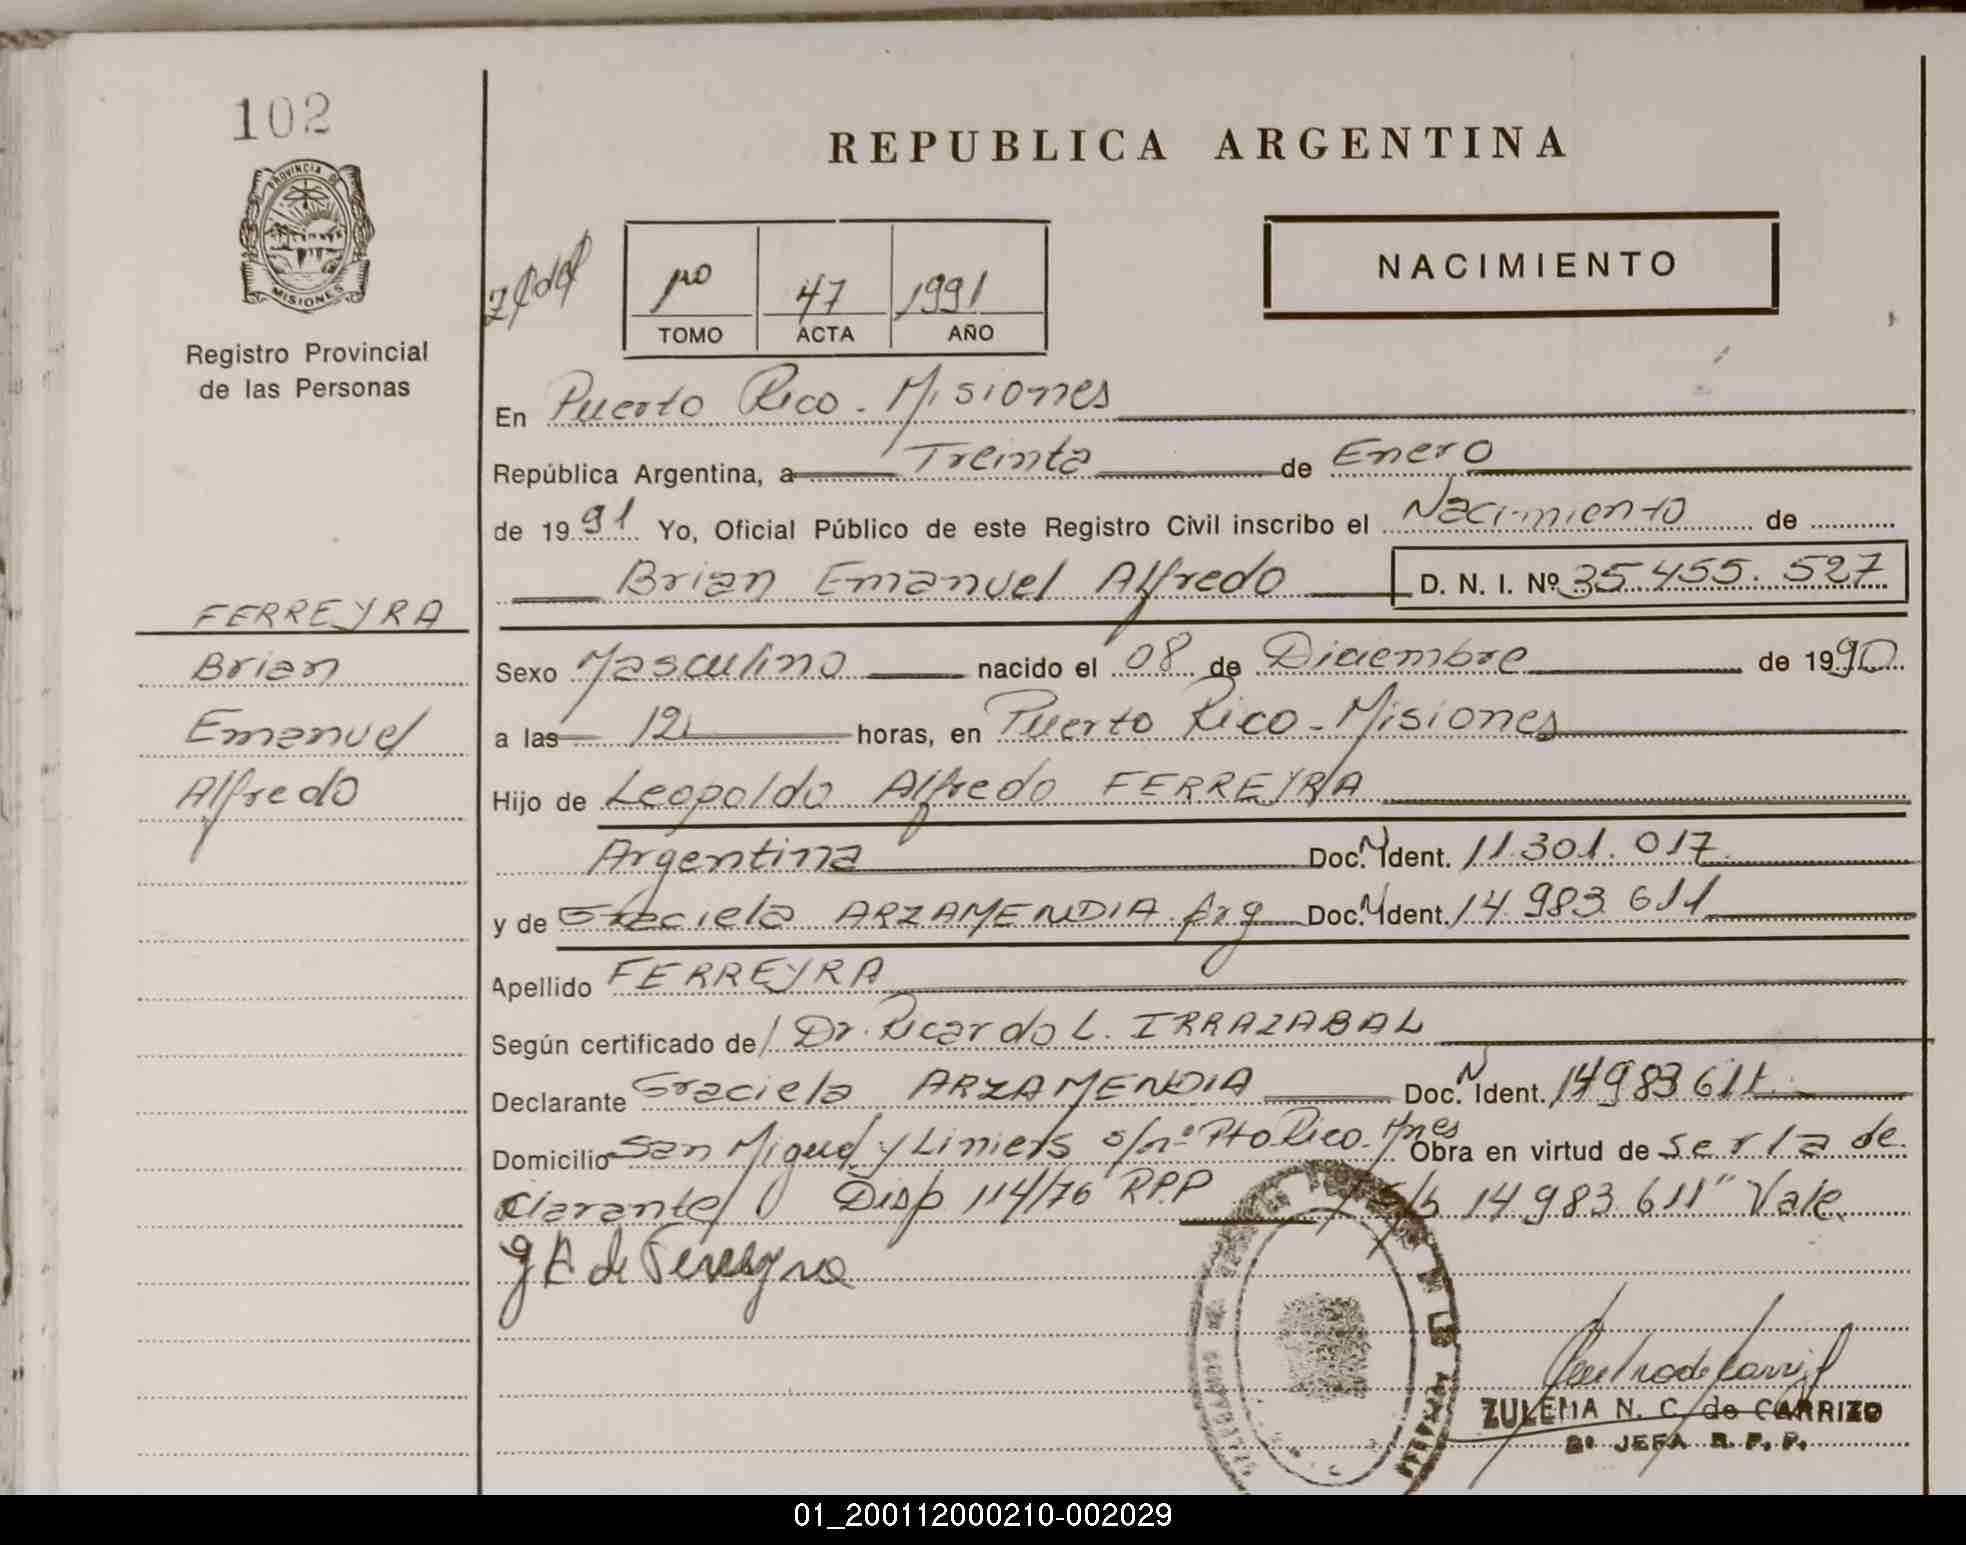 102
PROVINCIA DE
MISIONES
Registro Provincial
de las Personas
REPUBLICA ARGENTINA
NACIMIENTO
1º 47 1991
TOMO ACTA AÑO
En Puerto Rico - Misiones
República Argentina, a Treinta de Enero
de 1991 Yo, Oficial Público de este Registro Civil inscribo el Nacimiento de
Brian Emanuel Alfredo D. N. I. Nº 35.455.527
FERREYRA
Brian
Emanuel
Alfredo
Sexo Masculino nacido el 08 de Diciembre de 1990
a las 12 horas, en Puerto Rico - Misiones
Hijo de Leopoldo Alfredo FERREYRA
Argentina Doc. N Ident. 11.301.017
y de Graciela ARZAMENDIA Arg Doc. N Ident. 14.983.611
Apellido FERREYRA
Según certificado de Dr. Ricardo L. IRRAZABAL
Declarante Graciela ARZAMENDIA Doc. N Ident. 14983611
Domicilio San Miguel y Liniers s/nº Pto Rico. Mnes Obra en virtud de ser la de
clarante Disp 114/76 RPP s/b 14.983.611" Vale.
g A de Ferreyra
ZULEMA N. C. de CARRIZO
2º JEFA R. P. P.
01_200112000210-002029